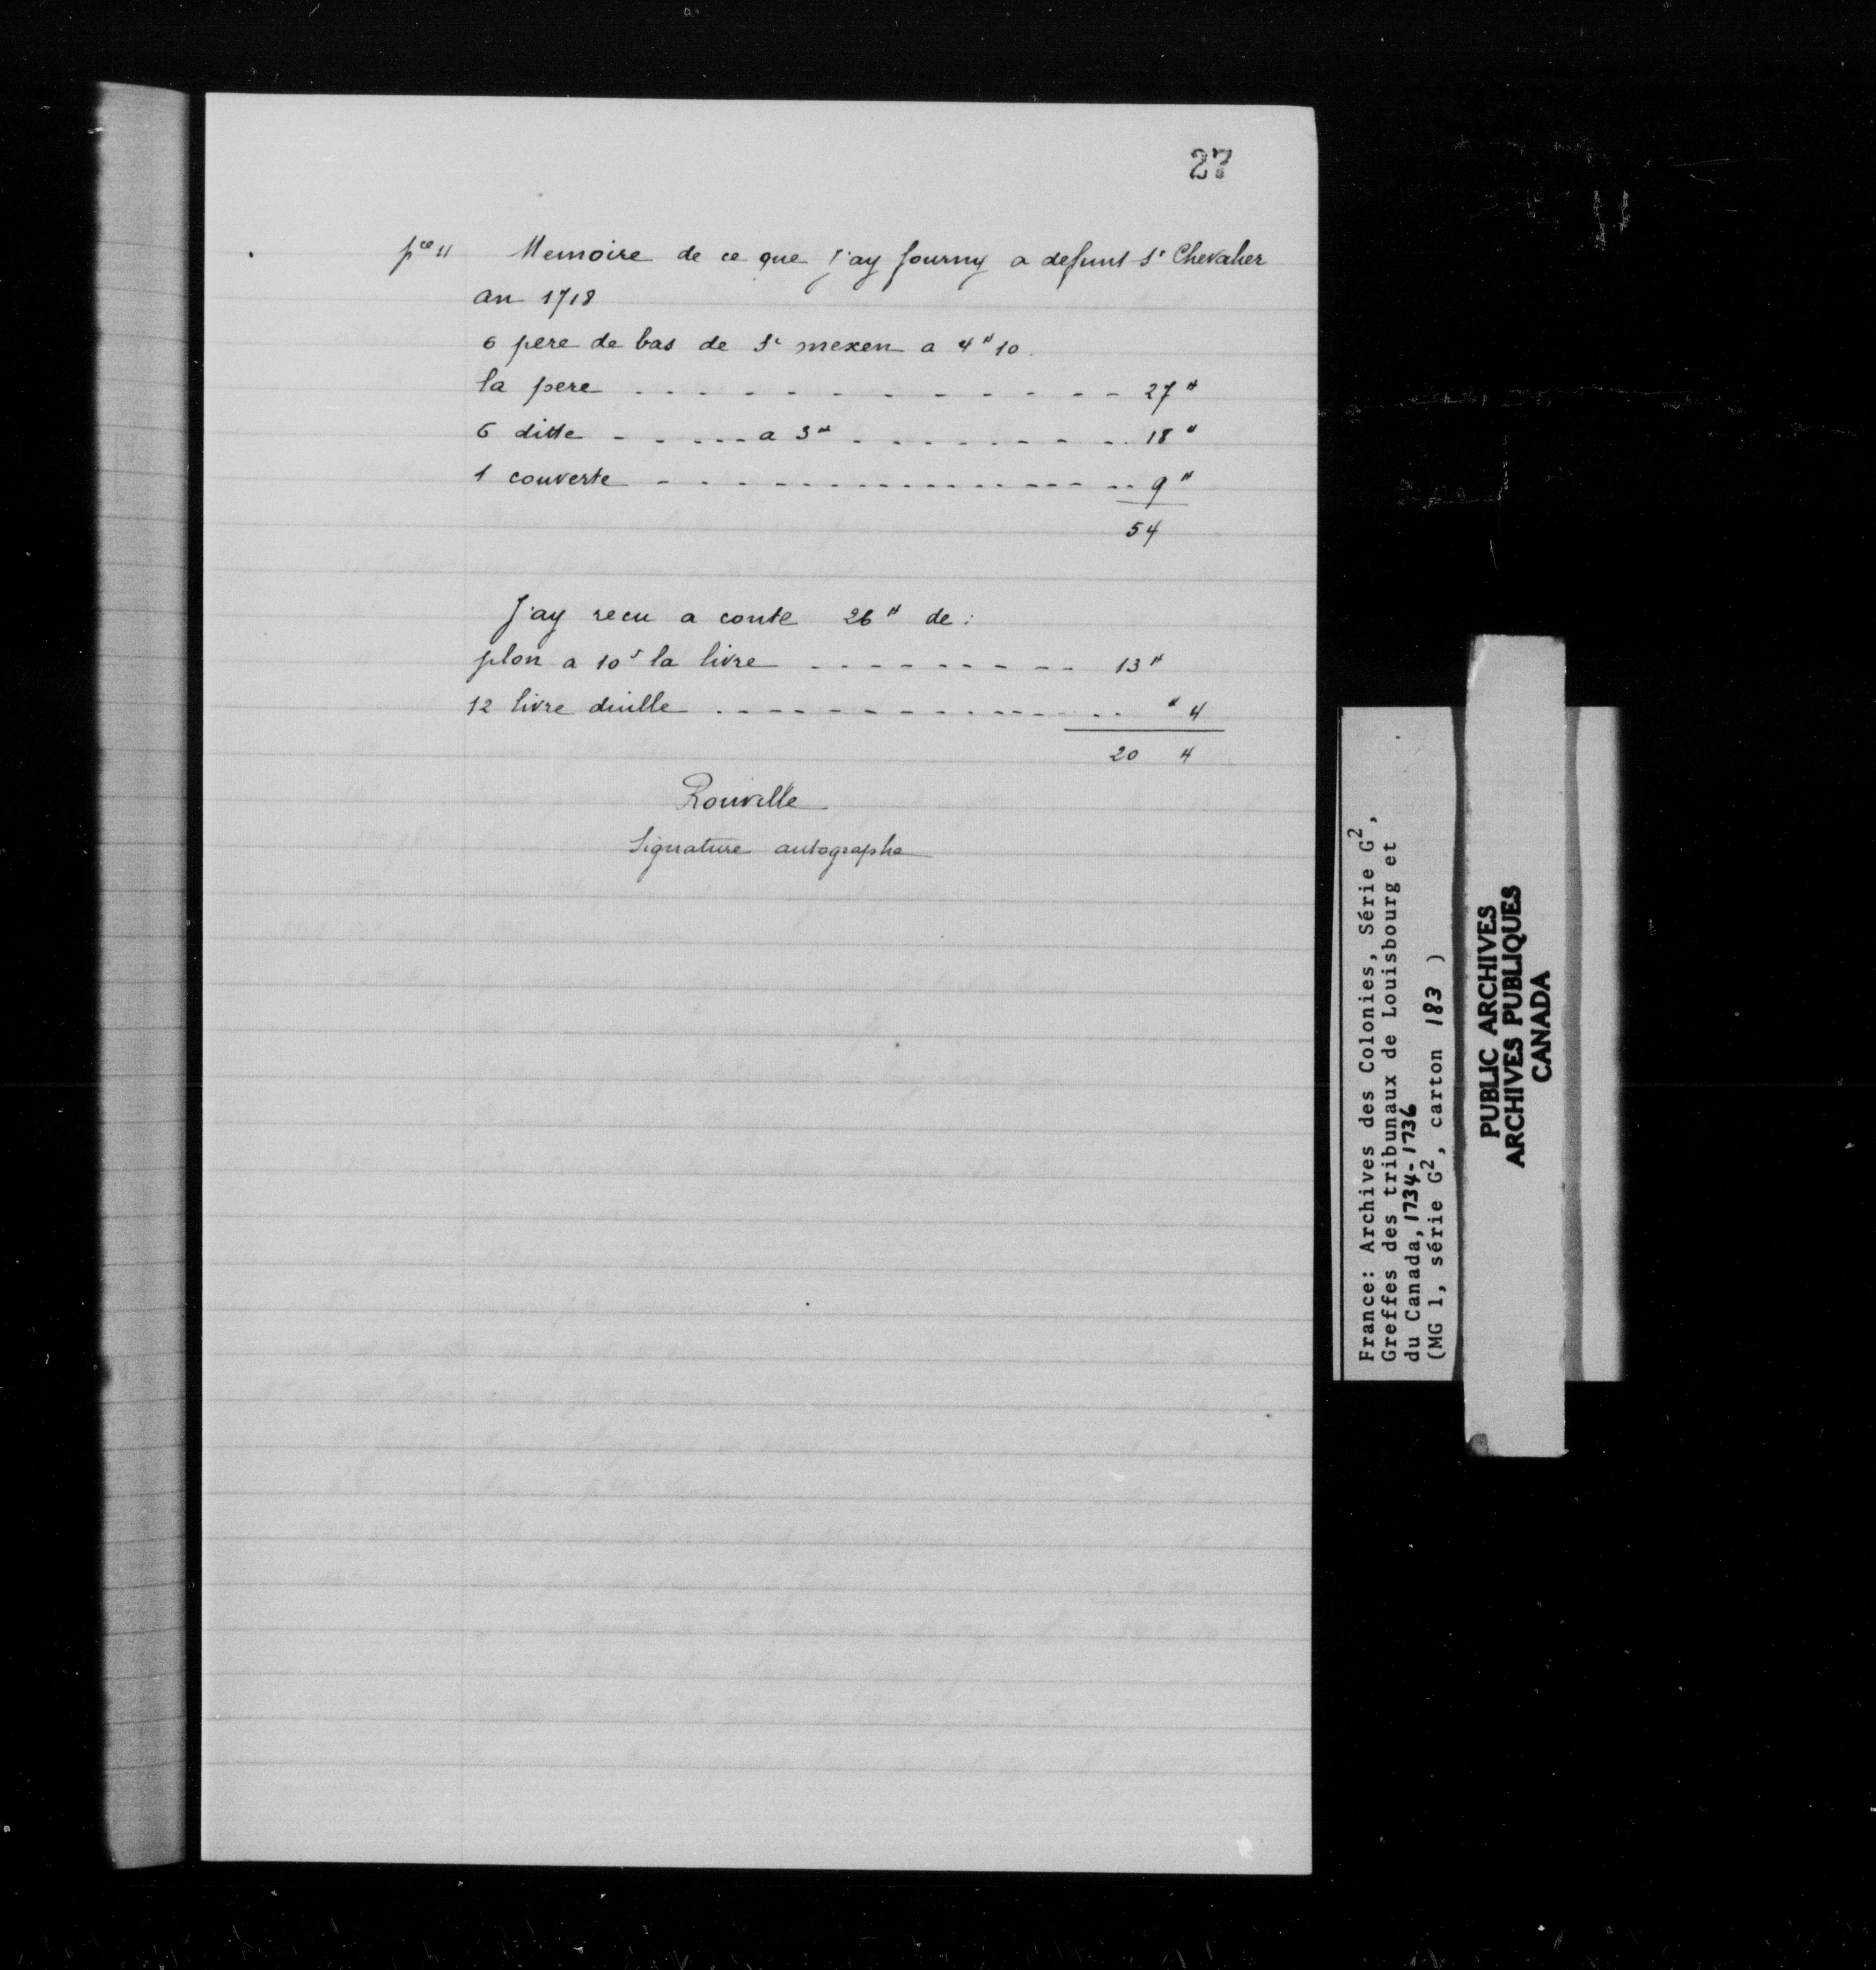 27
pce 11 Memoire de ce que j'ay fourny a defunt Sr Chevalier
an 1718
6 pere de bas de St mexen a 4# 10.
la pere - - - - - - - - - - - 27#
6 ditte - - - - - a 3# - - - - - - - - 18#
1 couverte - - - - - - - - - - - - - - - 9#
54
J'ay recu a conte 26# de :
plon a 10s la livre - - - - - - - - - 13#
12 livre duille - - - - - - - - - - - - - # 4
20 4
Rouville
Signature autographe
France: Archives des Colonies, Série G2,
Greffes des tribunaux de Louisbourg et
du Canada, 1734-1736
(MG 1, série G2, carton 183 )
PUBLIC ARCHIVES
ARCHIVES PUBLIQUES
CANADA